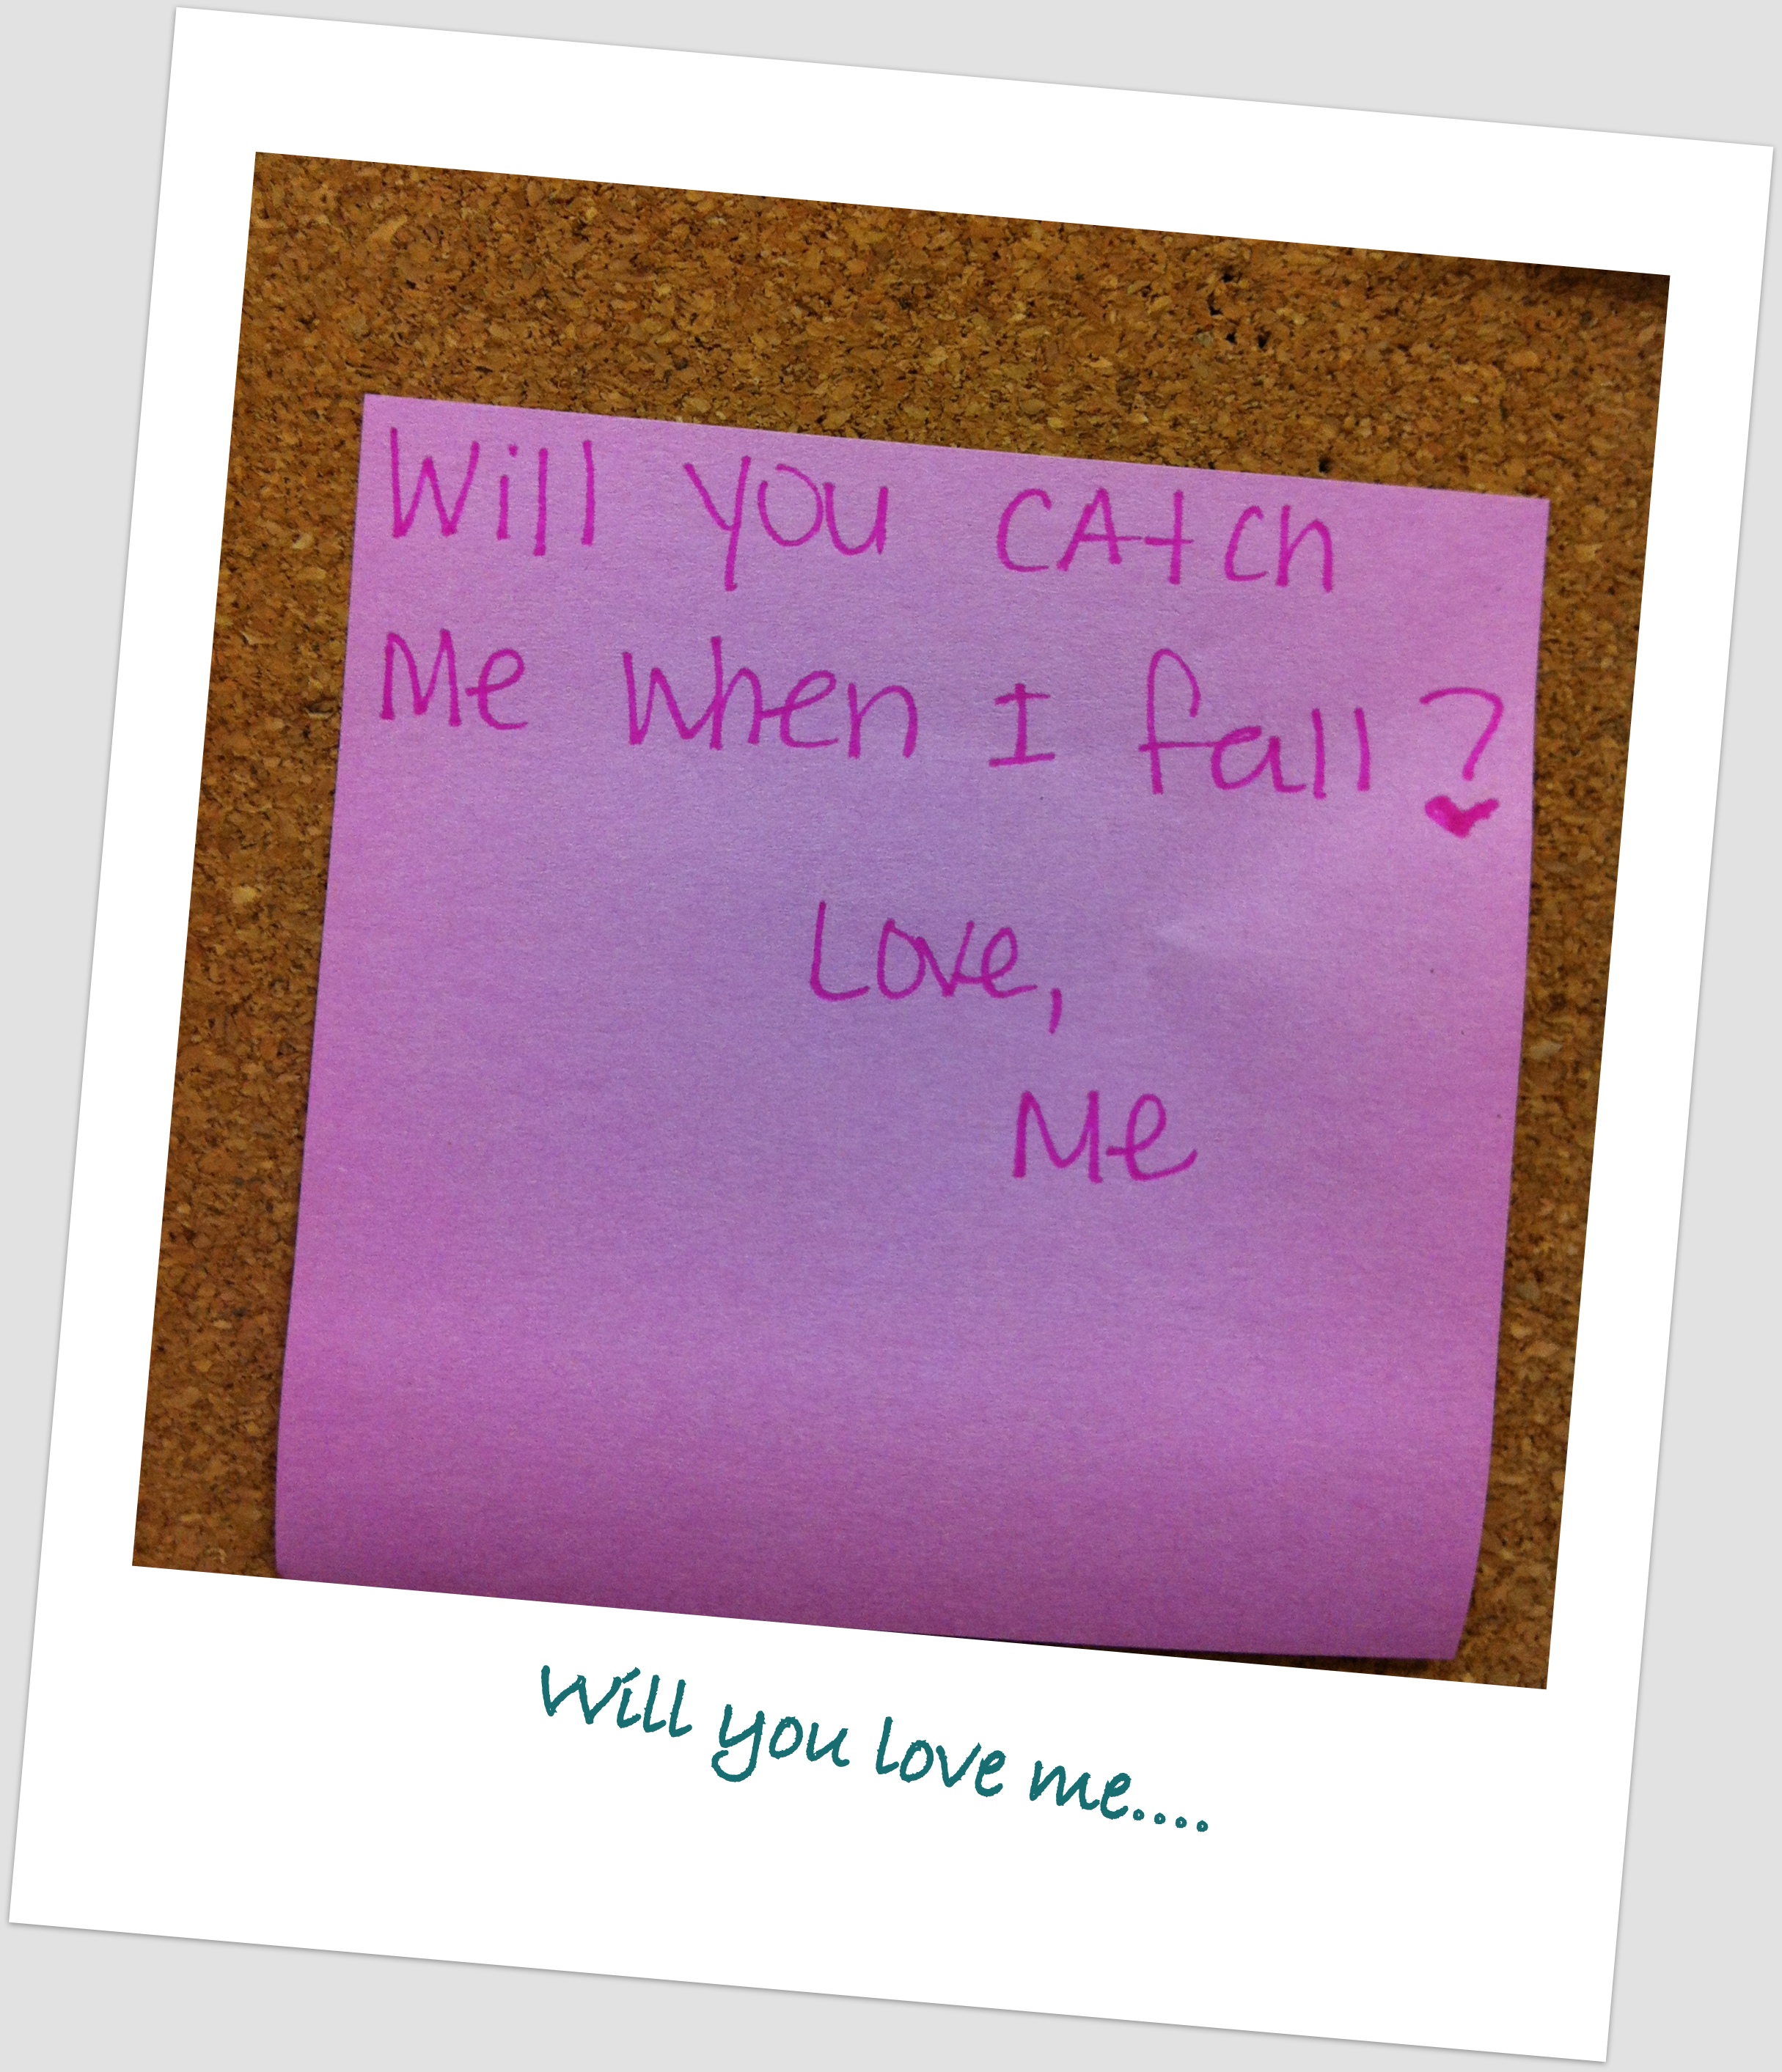 Will you cAtch
Me when I fall?
Love,
Me
Will you love me....